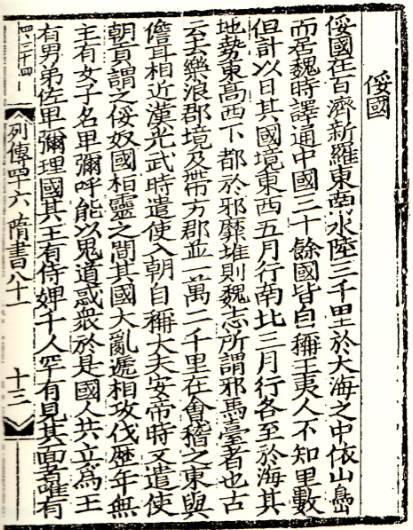 俀國
俀國在百濟新羅東南水陸三千里於大海之中依山島
而居魏時譯通中國三十餘國皆自稱王夷人不知里數
但計以日其國境東西五月行南北三月行各至於海其
地勢東髙西下都於邪靡堆則魏志所謂邪馬臺者也古
云去樂浪郡境及帶方郡並一萬二千里在㑹稽之東與
儋耳相近漢光武時遣使入朝自稱大夫安帝時又遣使
朝貢謂之俀奴國桓靈之間其國大亂遞相攻伐歷年無
主有女子名卑彌呼能以鬼道惑衆於是國人共立爲王
有男弟佐卑彌理國其王有侍婢千人罕有見其面者唯有
列傳四十六 隋書八十一 十三